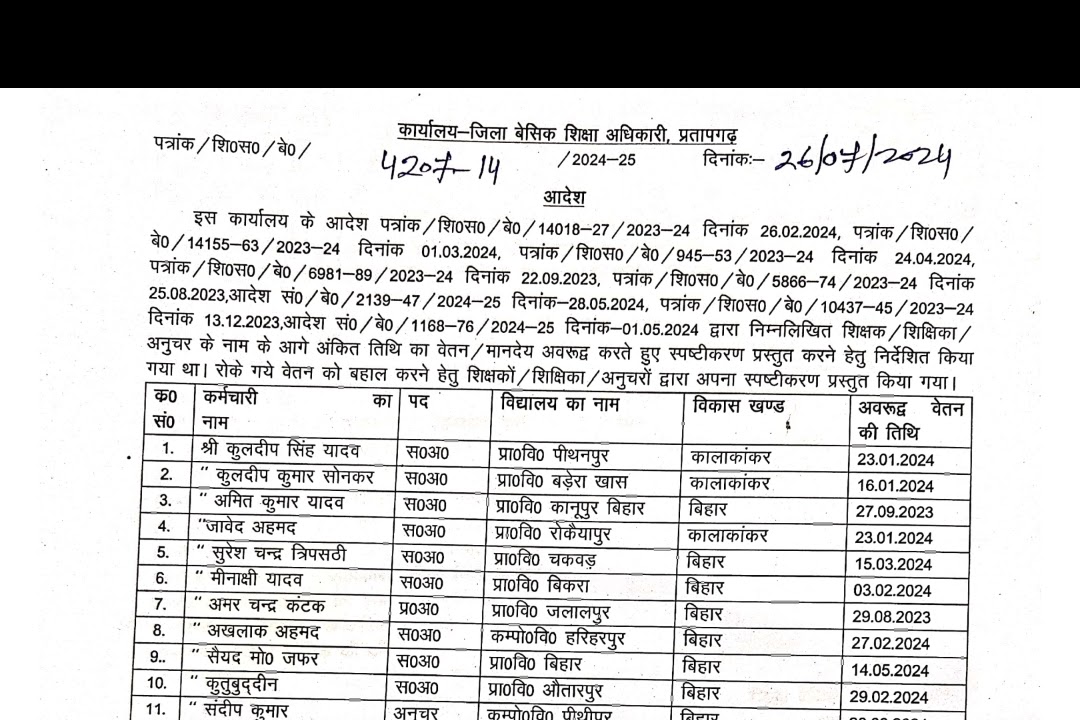 कार्यालय–जिला बेसिक शिक्षा अधिकारी, प्रतापगढ़
पत्रांक/शि0स0/बे0/ 4207-14 /2024–25 दिनांकः– 26/07/2024
आदेश
इस कार्यालय के आदेश पत्रांक/शि0स0/बे0/14018–27/2023–24 दिनांक 26.02.2024, पत्रांक/शि0स0/
बे0/14155–63/2023–24 दिनांक 01.03.2024, पत्रांक/शि0स0/बे0/945–53/2023–24 दिनांक 24.04.2024,
पत्रांक/शि0स0/बे0/6981–89/2023–24 दिनांक 22.09.2023, पत्रांक/शि0स0/बे0/5866–74/2023–24 दिनांक
25.08.2023,आदेश सं0/बे0/2139–47/2024–25 दिनांक–28.05.2024, पत्रांक/शि0स0/बे0/10437–45/2023–24
दिनांक 13.12.2023,आदेश सं0/बे0/1168–76/2024–25 दिनांक–01.05.2024 द्वारा निम्नलिखित शिक्षक/शिक्षिका/
अनुचर के नाम के आगे अंकित तिथि का वेतन/मानदेय अवरूद्व करते हुए स्पष्टीकरण प्रस्तुत करने हेतु निर्देशित किया
गया था। रोके गये वेतन को बहाल करने हेतु शिक्षकों/शिक्षिका/अनुचरों द्वारा अपना स्पष्टीकरण प्रस्तुत किया गया।
क0 सं0 कर्मचारी का नाम पद विद्यालय का नाम विकास खण्ड अवरूद्व वेतन की तिथि
1. श्री कुलदीप सिंह यादव स0अ0 प्रा0वि0 पीथनपुर कालाकांकर 23.01.2024
2. " कुलदीप कुमार सोनकर स0अ0 प्रा0वि0 बड़ेरा खास कालाकांकर 16.01.2024
3. " अमित कुमार यादव स0अ0 प्रा0वि0 कानूपुर बिहार बिहार 27.09.2023
4. "जावेद अहमद स0अ0 प्रा0वि0 रोकैयापुर कालाकांकर 23.01.2024
5. " सुरेश चन्द्र त्रिपसठी स0अ0 प्रा0वि0 चकवड़ बिहार 15.03.2024
6. " मीनाक्षी यादव स0अ0 प्रा0वि0 बिकरा बिहार 03.02.2024
7. " अमर चन्द्र कंटक प्र0अ0 प्रा0वि0 जलालपुर बिहार 29.08.2023
8. " अखलाक अहमद स0अ0 कम्पो0वि0 हरिहरपुर बिहार 27.02.2024
9.. " सैयद मो0 जफर स0अ0 प्रा0वि0 बिहार बिहार 14.05.2024
10. " कुतुबुद्दीन स0अ0 प्रा0वि0 औतारपुर बिहार 29.02.2024
11. " संदीप कुमार अनुचर कम्पो0वि0 पीथीपुर बिहार